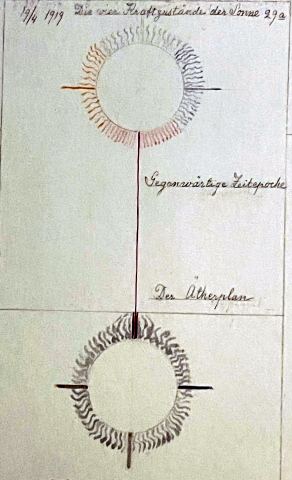 19/4 1919 Die vier Kraftzustände der Sonne 29a
Gegenwärtige Zeitepoche
Der Ätherplan